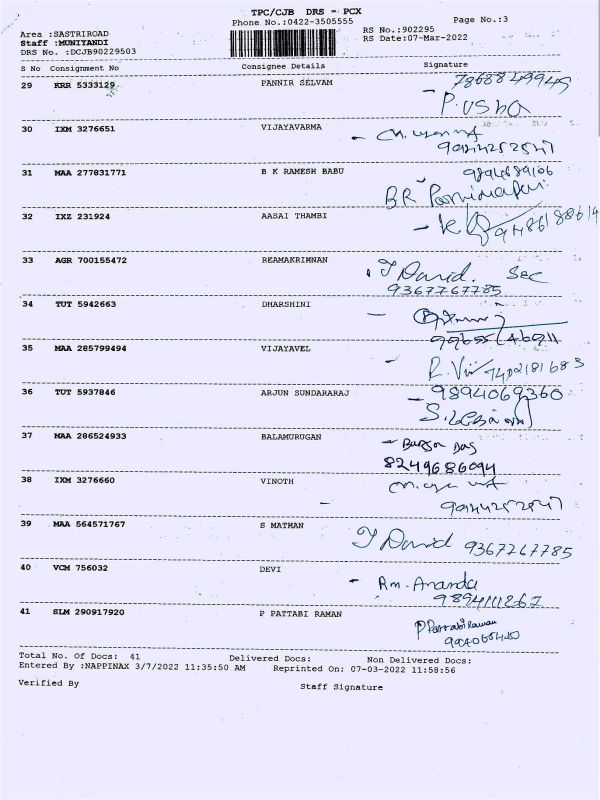 TPC/CJB DRS - PCX
Phone No.:0422-3505555
Page No.:3
Area :SASTRIROAD
Staff :MUNIYANDI
DRS No. :DCJB90229503
RS No.:902295
RS Date:07-Mar-2022
S No Consignment No Consignee Details Signature
29 KRR 5333129 PANNIR SELVAM 7868849945
P. Usha
30 IXM 3276651 VIJAYAVARMA
9944252547
31 MAA 277831771 B K RAMESH BABU 9894689106
BR
32 IXZ 231924 AASAI THAMBI
33 AGR 700155472 REAMAKRIMNAN J David. Sec
9367767785
34 TUT 5942663 DHARSHINI
35 MAA 285799494 VIJAYAVEL
7402181683
36 TUT 5937846 ARJUN SUNDARARAJ 9894069360
37 MAA 286524933 BALAMURUGAN Das
8249686094
38 IXM 3276660 VINOTH
9944252547
39 MAA 564571767 S MATHAN J David 9367767785
40 VCM 756032 DEVI Rm. Ananda
9894111267
41 SLM 290917920 P PATTABI RAMAN P Pattabiraman
Total No. Of Docs: 41 Delivered Docs: Non Delivered Docs:
Entered By :NAPPINAX 3/7/2022 11:35:50 AM Reprinted On: 07-03-2022 11:58:56
Verified By Staff Signature